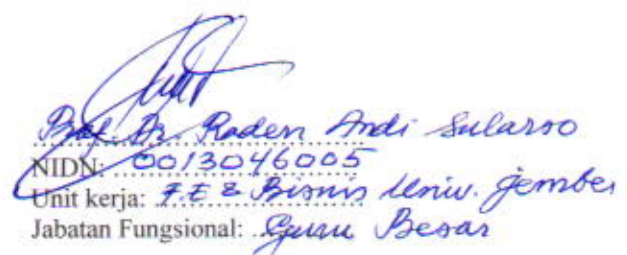 Prof. Dr. Raden Andi Sularso
NIDN: 0013046005
Unit kerja: F.E & Bisnis Univ. Jember
Jabatan Fungsional: Guru Besar